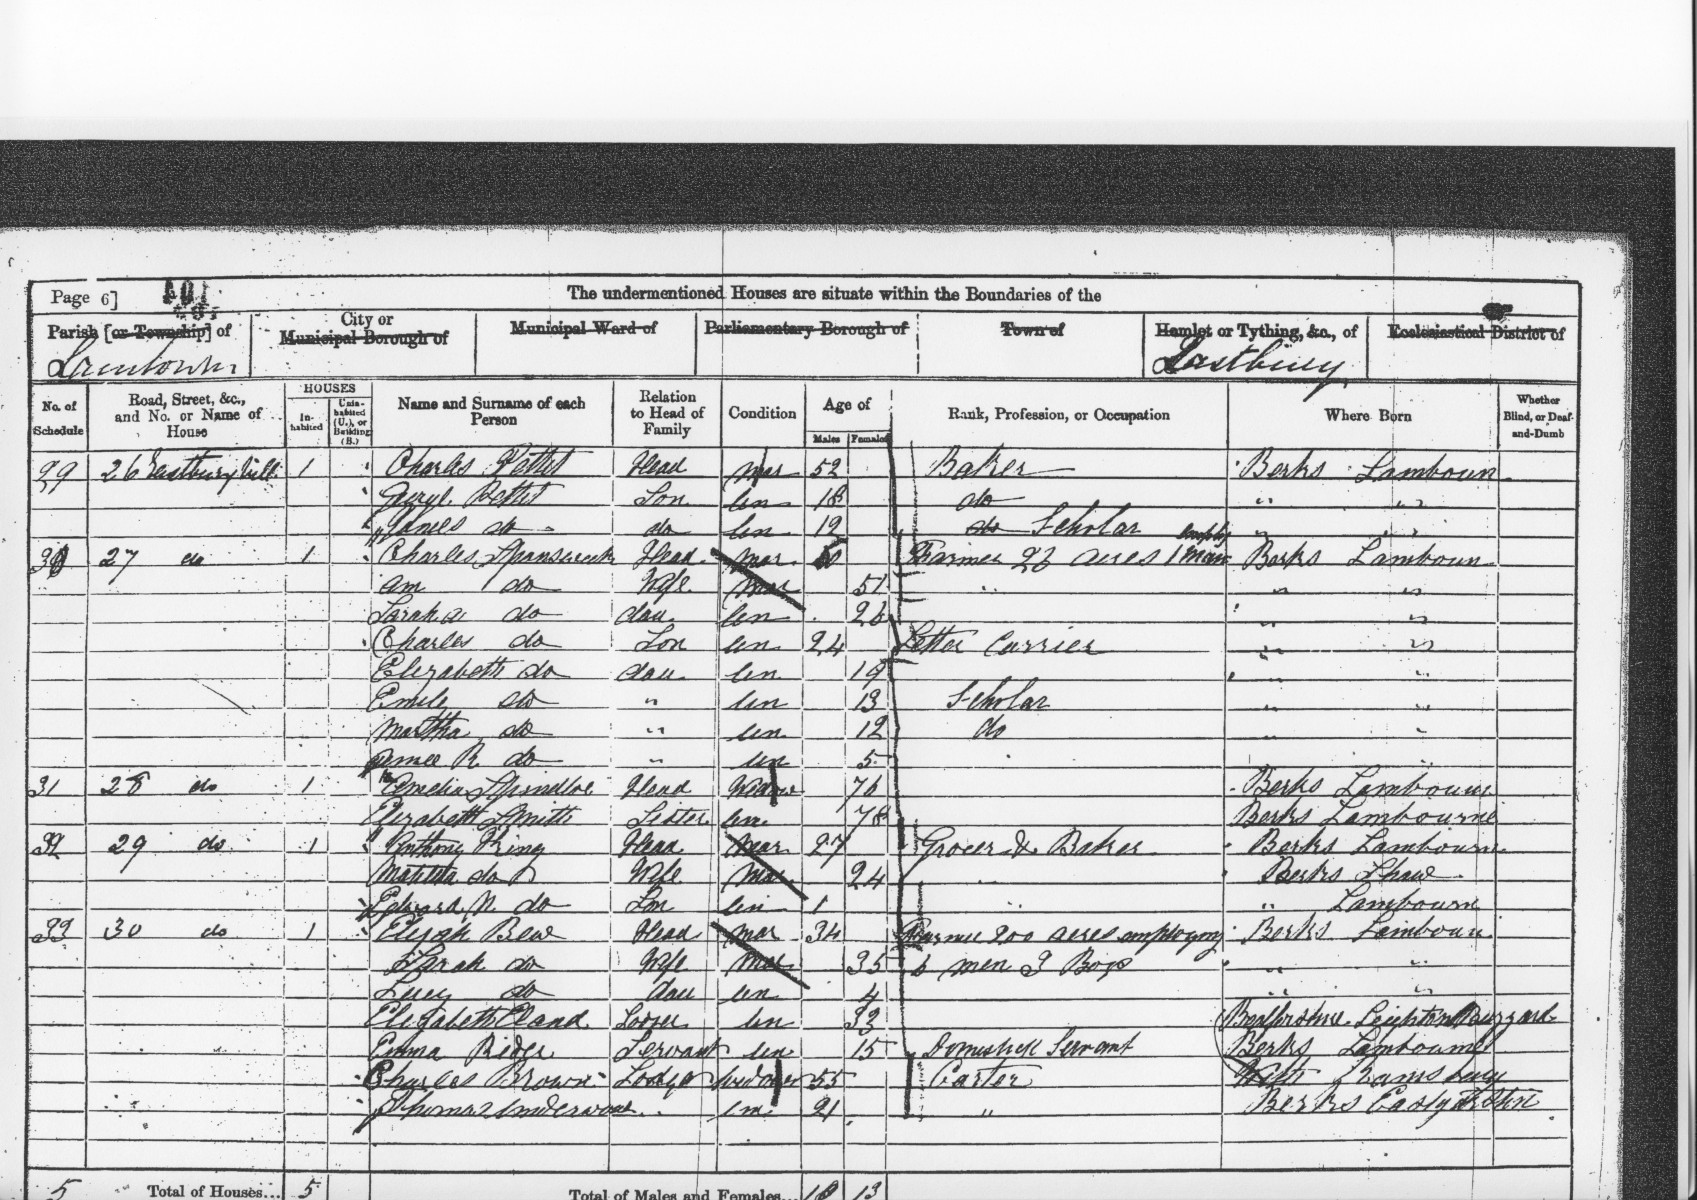 Page 6] 101
The undermentioned Houses are situate within the Boundaries of the
Parish [or Township] of City or Municipal Borough of Municipal Ward of Parliamentary Borough of Town of Hamlet or Tything, &c., of Ecclesiastical District of
Lambourn Eastbury
No. of Schedule Road, Street, &c., and No. or Name of House HOUSES In-habited Unin-habited (U.), or Building (B.) Name and Surname of each Person Relation to Head of Family Condition Age of Males Females Rank, Profession, or Occupation Where Born Whether Blind, or Deaf-and-Dumb
29 26 Eastbury 1 Charles Pettit Head mar 52 Baker Berks Lambourn
Pettit Son un 18 do " "
James do do un 12 do Scholar " "
30 27 do 1 Charles Head mar Farmer 26 acres employ 1 man Berks Lambourn
an do Wife mar 51 " " "
Sarah a do dau un 26 " "
Charles do Son un 24 Letter Carrier " "
Elizabeth do dau un 19 " "
Emile do " un 13 Scholar " "
Martha do " un 12 do " "
R do " un 5
31 28 do 1 Amelia Spindloe Head Widow 76 Berks Lambourn
Elizabeth Smith Sister un 78 Berks Lambourne
32 29 do 1 Anthony King Head mar 27 Grocer & Baker Berks Lambourn
Matilda do Wife mar 24 " Berks Shaw
Edward N do Son un 1 " " Lambourn
33 30 do 1 Elijah Bew Head mar 34 Farmer 200 acres employing Berks Lambourn
Sarah do Wife mar 35 6 men 3 Boys " "
Lucy do dau un 4 " "
Elizabeth Eland un 33 Leighton Buzzard
Emma Servant un 15 Domestick Servant Berks Lambourne
Charles Brown Lodger widower 55 Carter Wilts Ramsbury
Thomas Underwood un 21 " Berks
5 Total of Houses... 5 Total of Males and Females... 10 13